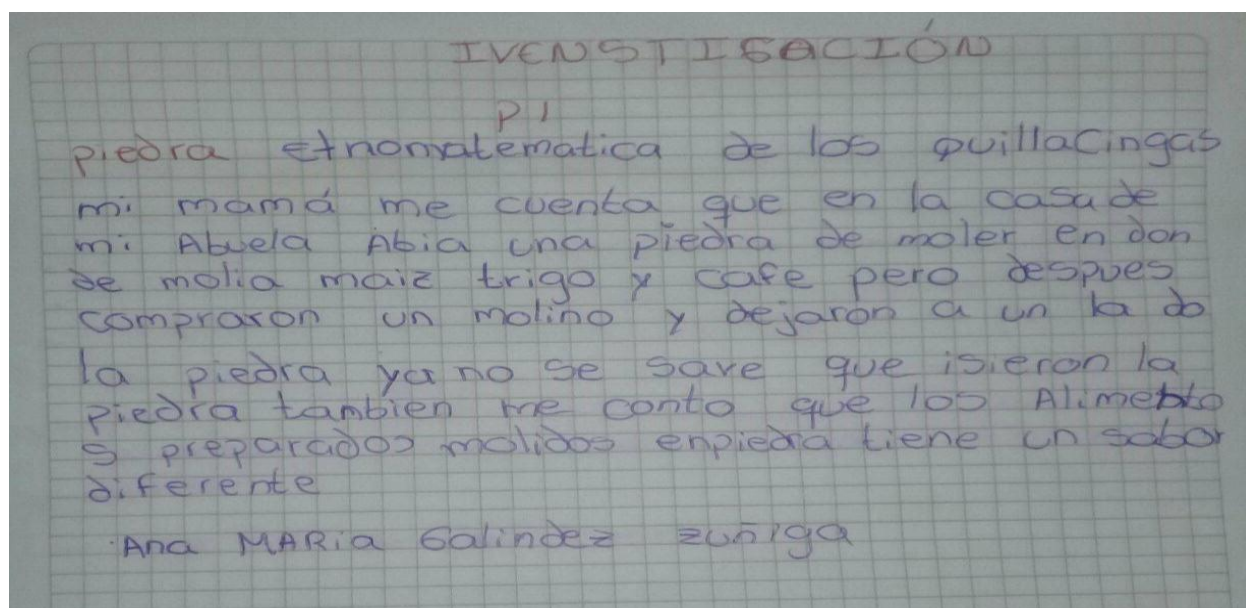 IVENSTIGACIÓN
P1
piedra etnomatematica de los quillacingas
mi mamá me cuenta que en la casa de
mi Abuela Abia una piedra de moler en don
de molia maiz trigo y cafe pero despues
compraron un molino y dejaron a un la do
la piedra ya no se save que isieron la
piedra tambien me conto que los Alimento
s preparados molidos enpiedra tiene un sabor
diferente
Ana MARia Galindez zuñiga